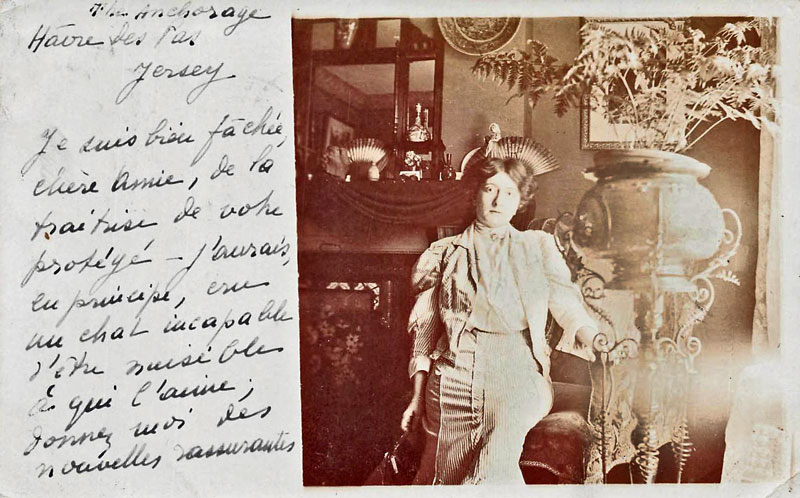 The Anchorage
Havre des Pas
Jersey
Je suis bien fâchée,
chère Amie, de la
traîtrise de votre
protégé – j'aurais,
en principe, cru
un chat incapable
d'être nuisible
à qui l'aime;
donnez moi des
nouvelles rassurantes